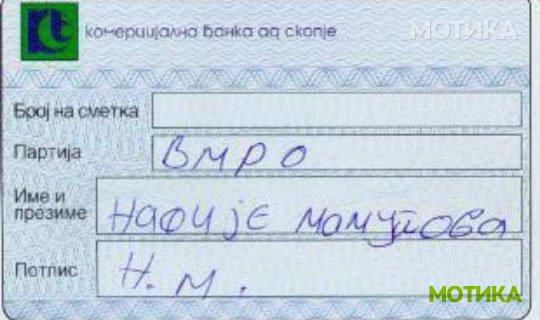 МОТИКА
комерцијална банка ад скопје
Број на сметка
Партија ВМРО
Име и презиме Нафије
Потпис Н.М.
МОТИКА